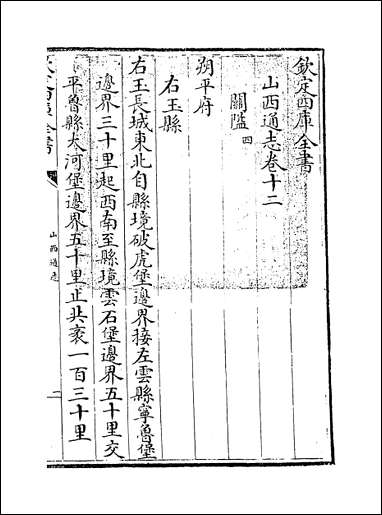 欽定四庫全書
山西通志卷十二
關隘四
朔平府
右玉縣
右玉長城東北自縣境破虎堡邊界接左雲縣寧魯堡
邊界三十里起西南至縣境雲石堡邊界五十里交
平魯縣大河堡邊界五十里止共袤一百三十里
欽定四庫全書
山西通志
一